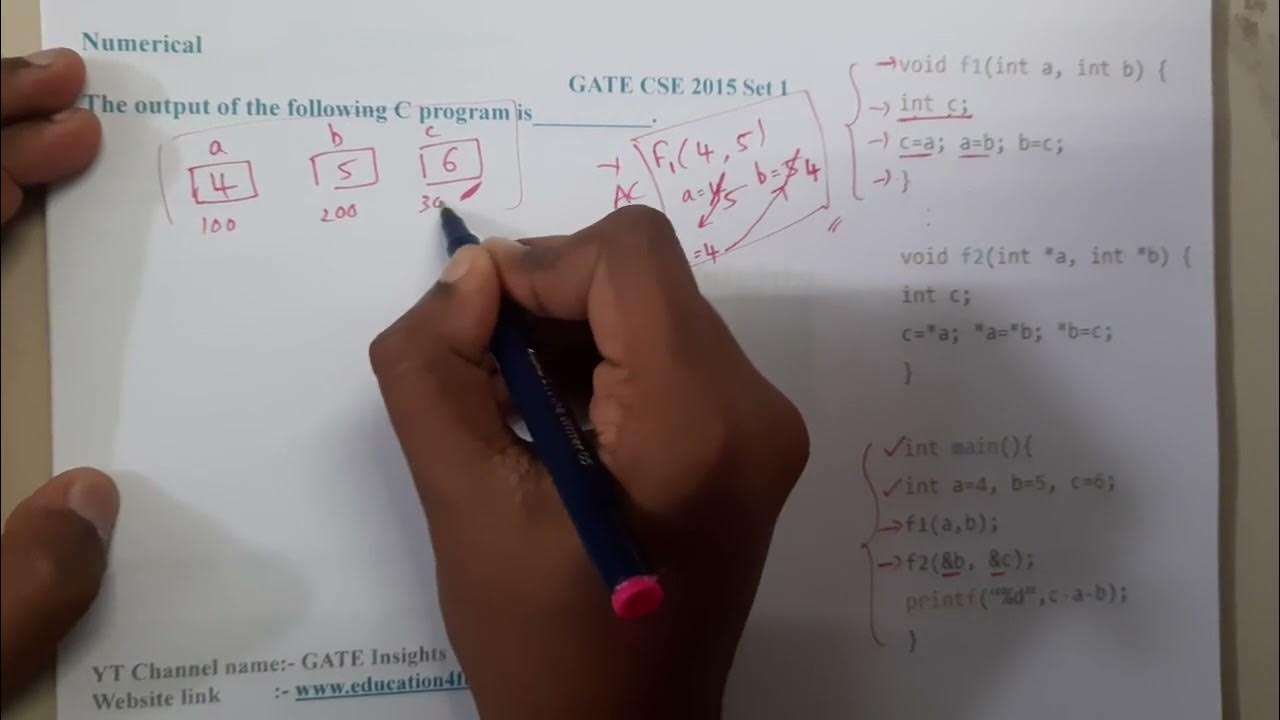 Numerical
GATE CSE 2015 Set 1
The output of the following C program is__________.
a b c
4 5 6
100 200 30
F1(4,5)
AC
a=4 5 b=5 4
=4
void f1(int a, int b) {
int c;
c=a; a=b; b=c;
}
:
void f2(int *a, int *b) {
int c;
c=*a; *a=*b; *b=c;
}
int main(){
int a=4, b=5, c=6;
f1(a,b);
f2(&b, &c);
printf("%d",c-a-b);
}
YT Channel name:- GATE Insights
Website link :- www.education4f